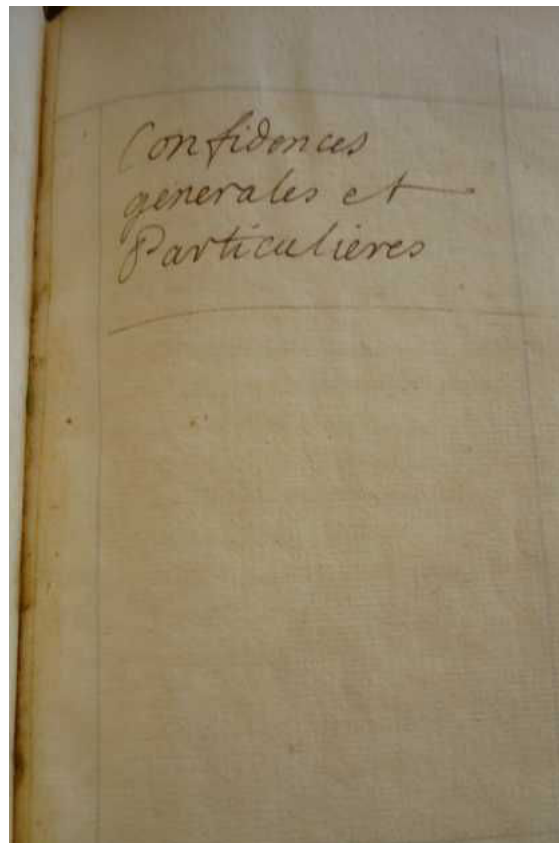 Confidences
generales et
Particulières